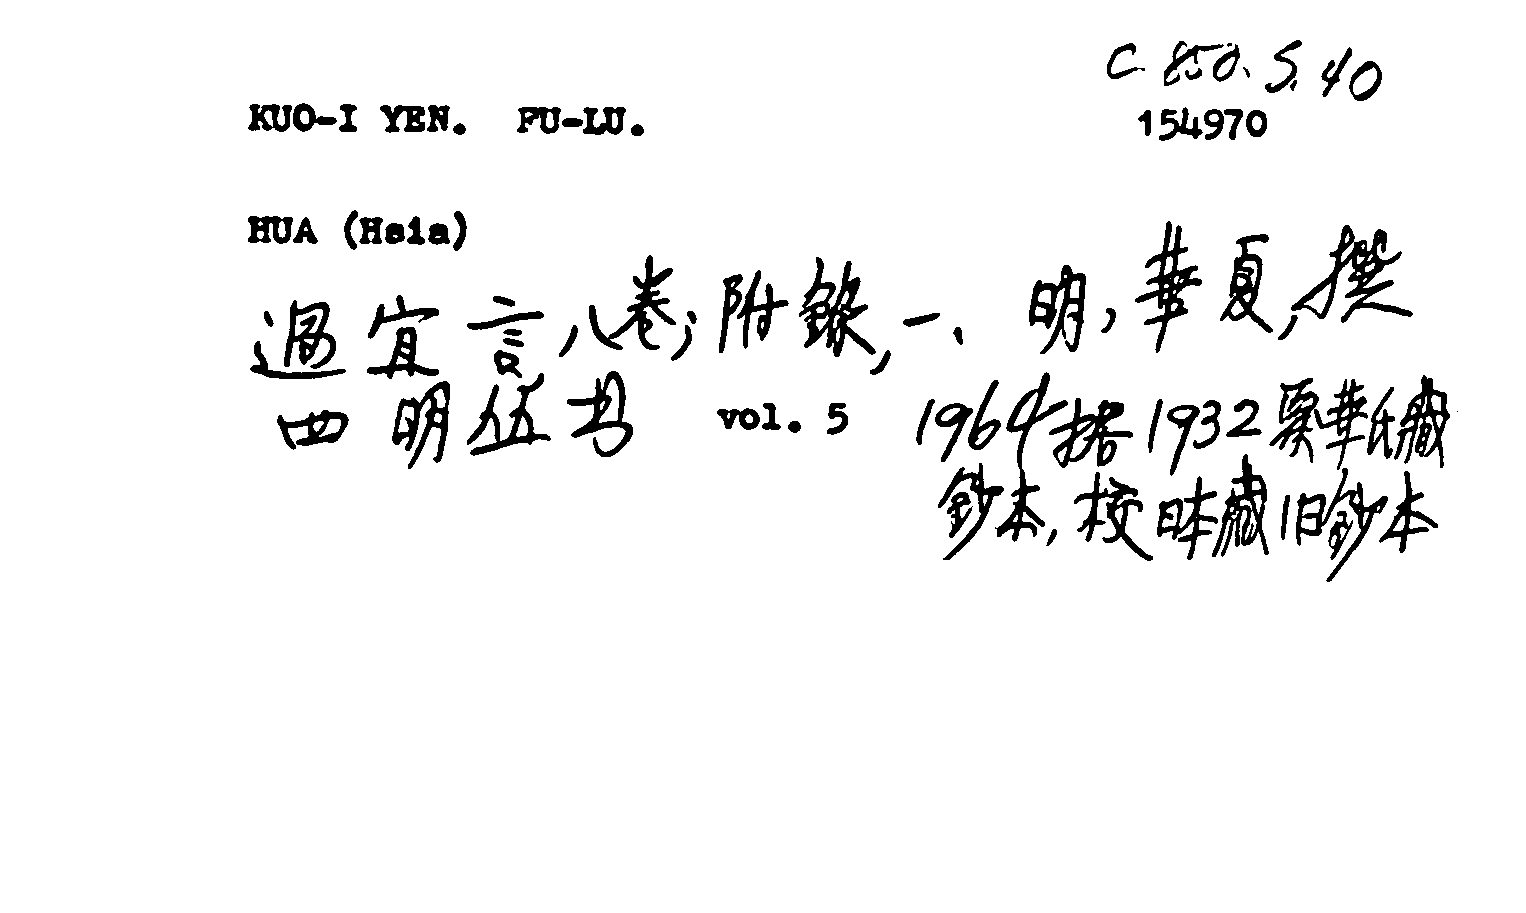 C. 850. S. 40
KUO-I YEN. FU-LU. 154970
HUA (Hsia)
過宜言,八卷;附錄,一、 明,華夏,撰
四明丛书 vol. 5 1964据1932華氏藏
鈔本,校日本藏旧鈔本